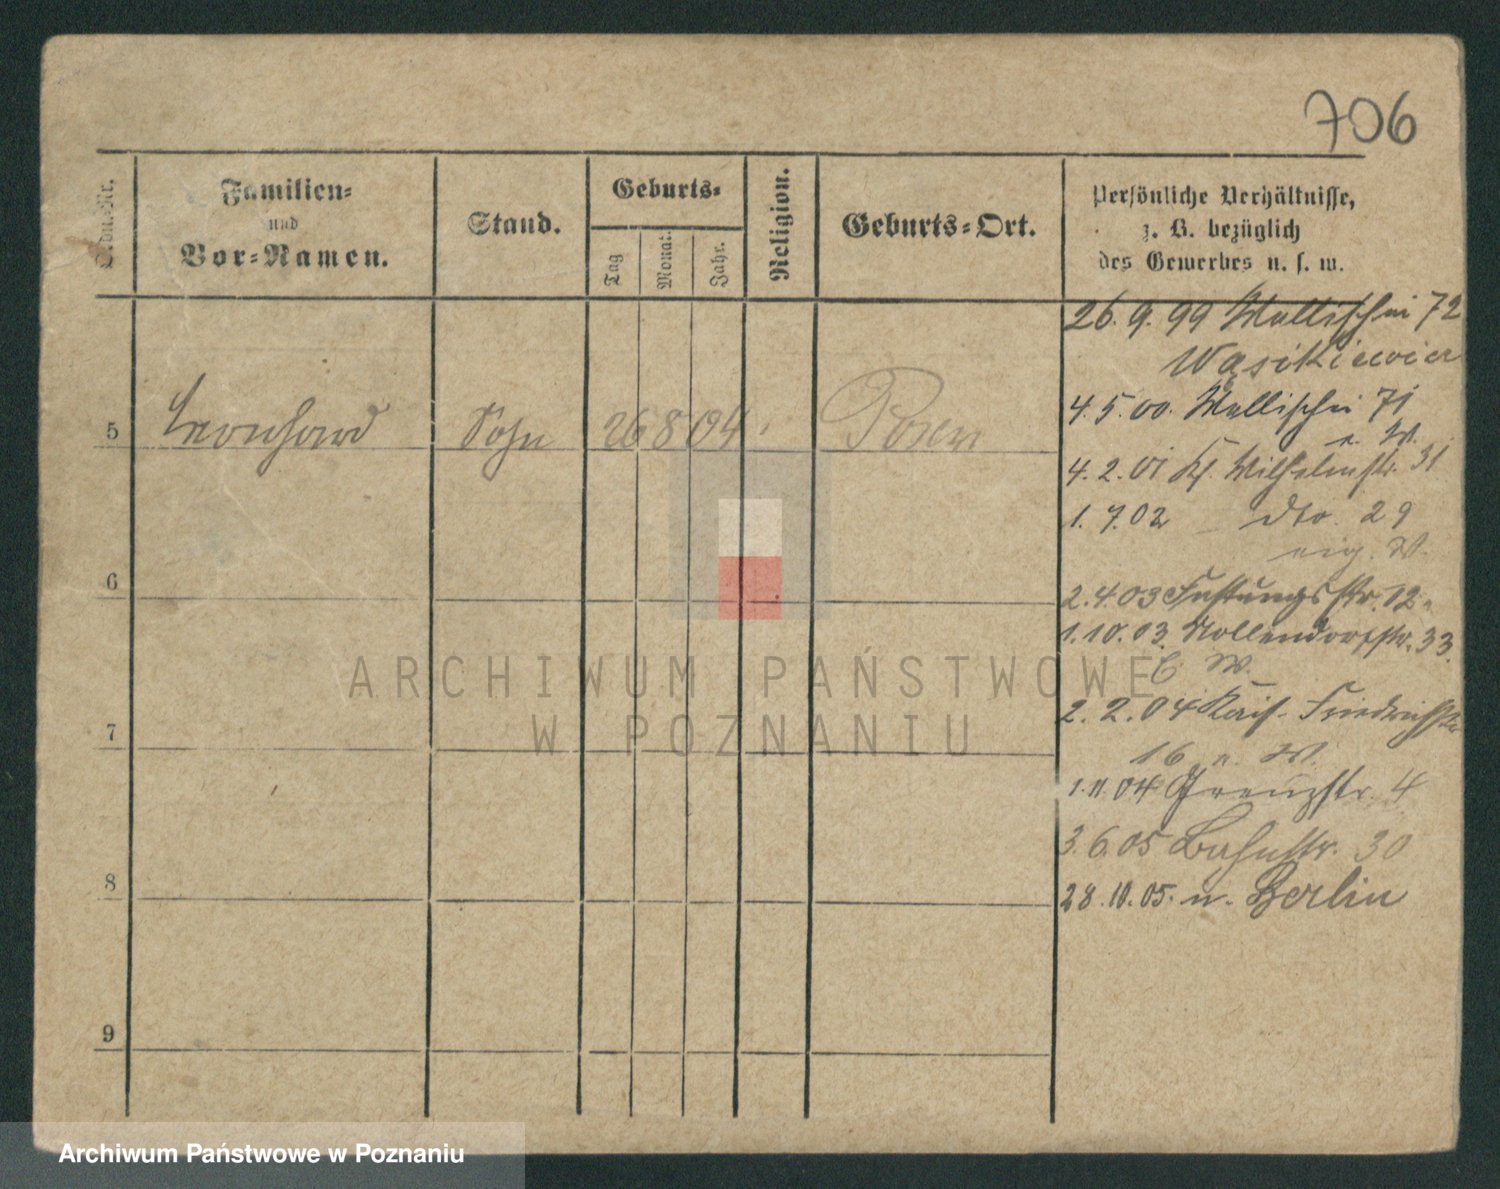 706
Ordn.-Nr.
Familien-
und
Vor-Namen.
Stand.
Geburts-
Tag
Monat.
Jahr.
Religion.
Geburts-Ort.
Persönliche Verhältnisse,
z. B. bezüglich
des Gewerbes u. s. w.
26.9.99 Wallischei 72
Wąsikiewicz
4.5.00. Wallischei 71
5 Leonhard Sohn 26 8 04 Posen
e. W.
4.2.01 Kl. Wilhelmstr. 31
1.7.02 dto. 29
eig. W.
6
2.4.03 Festungsstr. 12
1.10.03. Nollendorfstr. 33.
W.
2.2.04 Kais. Friedrichstr
7
16 e. W.
1.11.04 Kreuzstr. 4
3.6.05 Bahnstr. 30
8
28.10.05. n. Berlin
9
ARCHIWUM PAŃSTWOWE
W POZNANIU
Archiwum Państwowe w Poznaniu